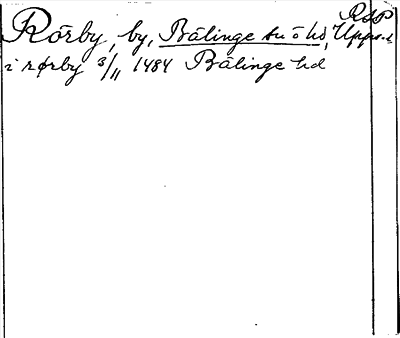 RSP
Rörby, by, Bälinge sn o hd, Upps.l
i rørby 3/11 1484 Bälinge hd